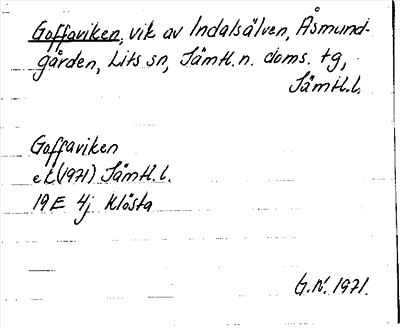 Goffaviken, vik av Indalsälven, Åsmund-
gården, Lits sn, Jämtl. n. doms. tg,
Jämtl. l.
Goffaviken
ek (1971) Jämtl. l.
19E 4j Klösta
G.N. 1971.